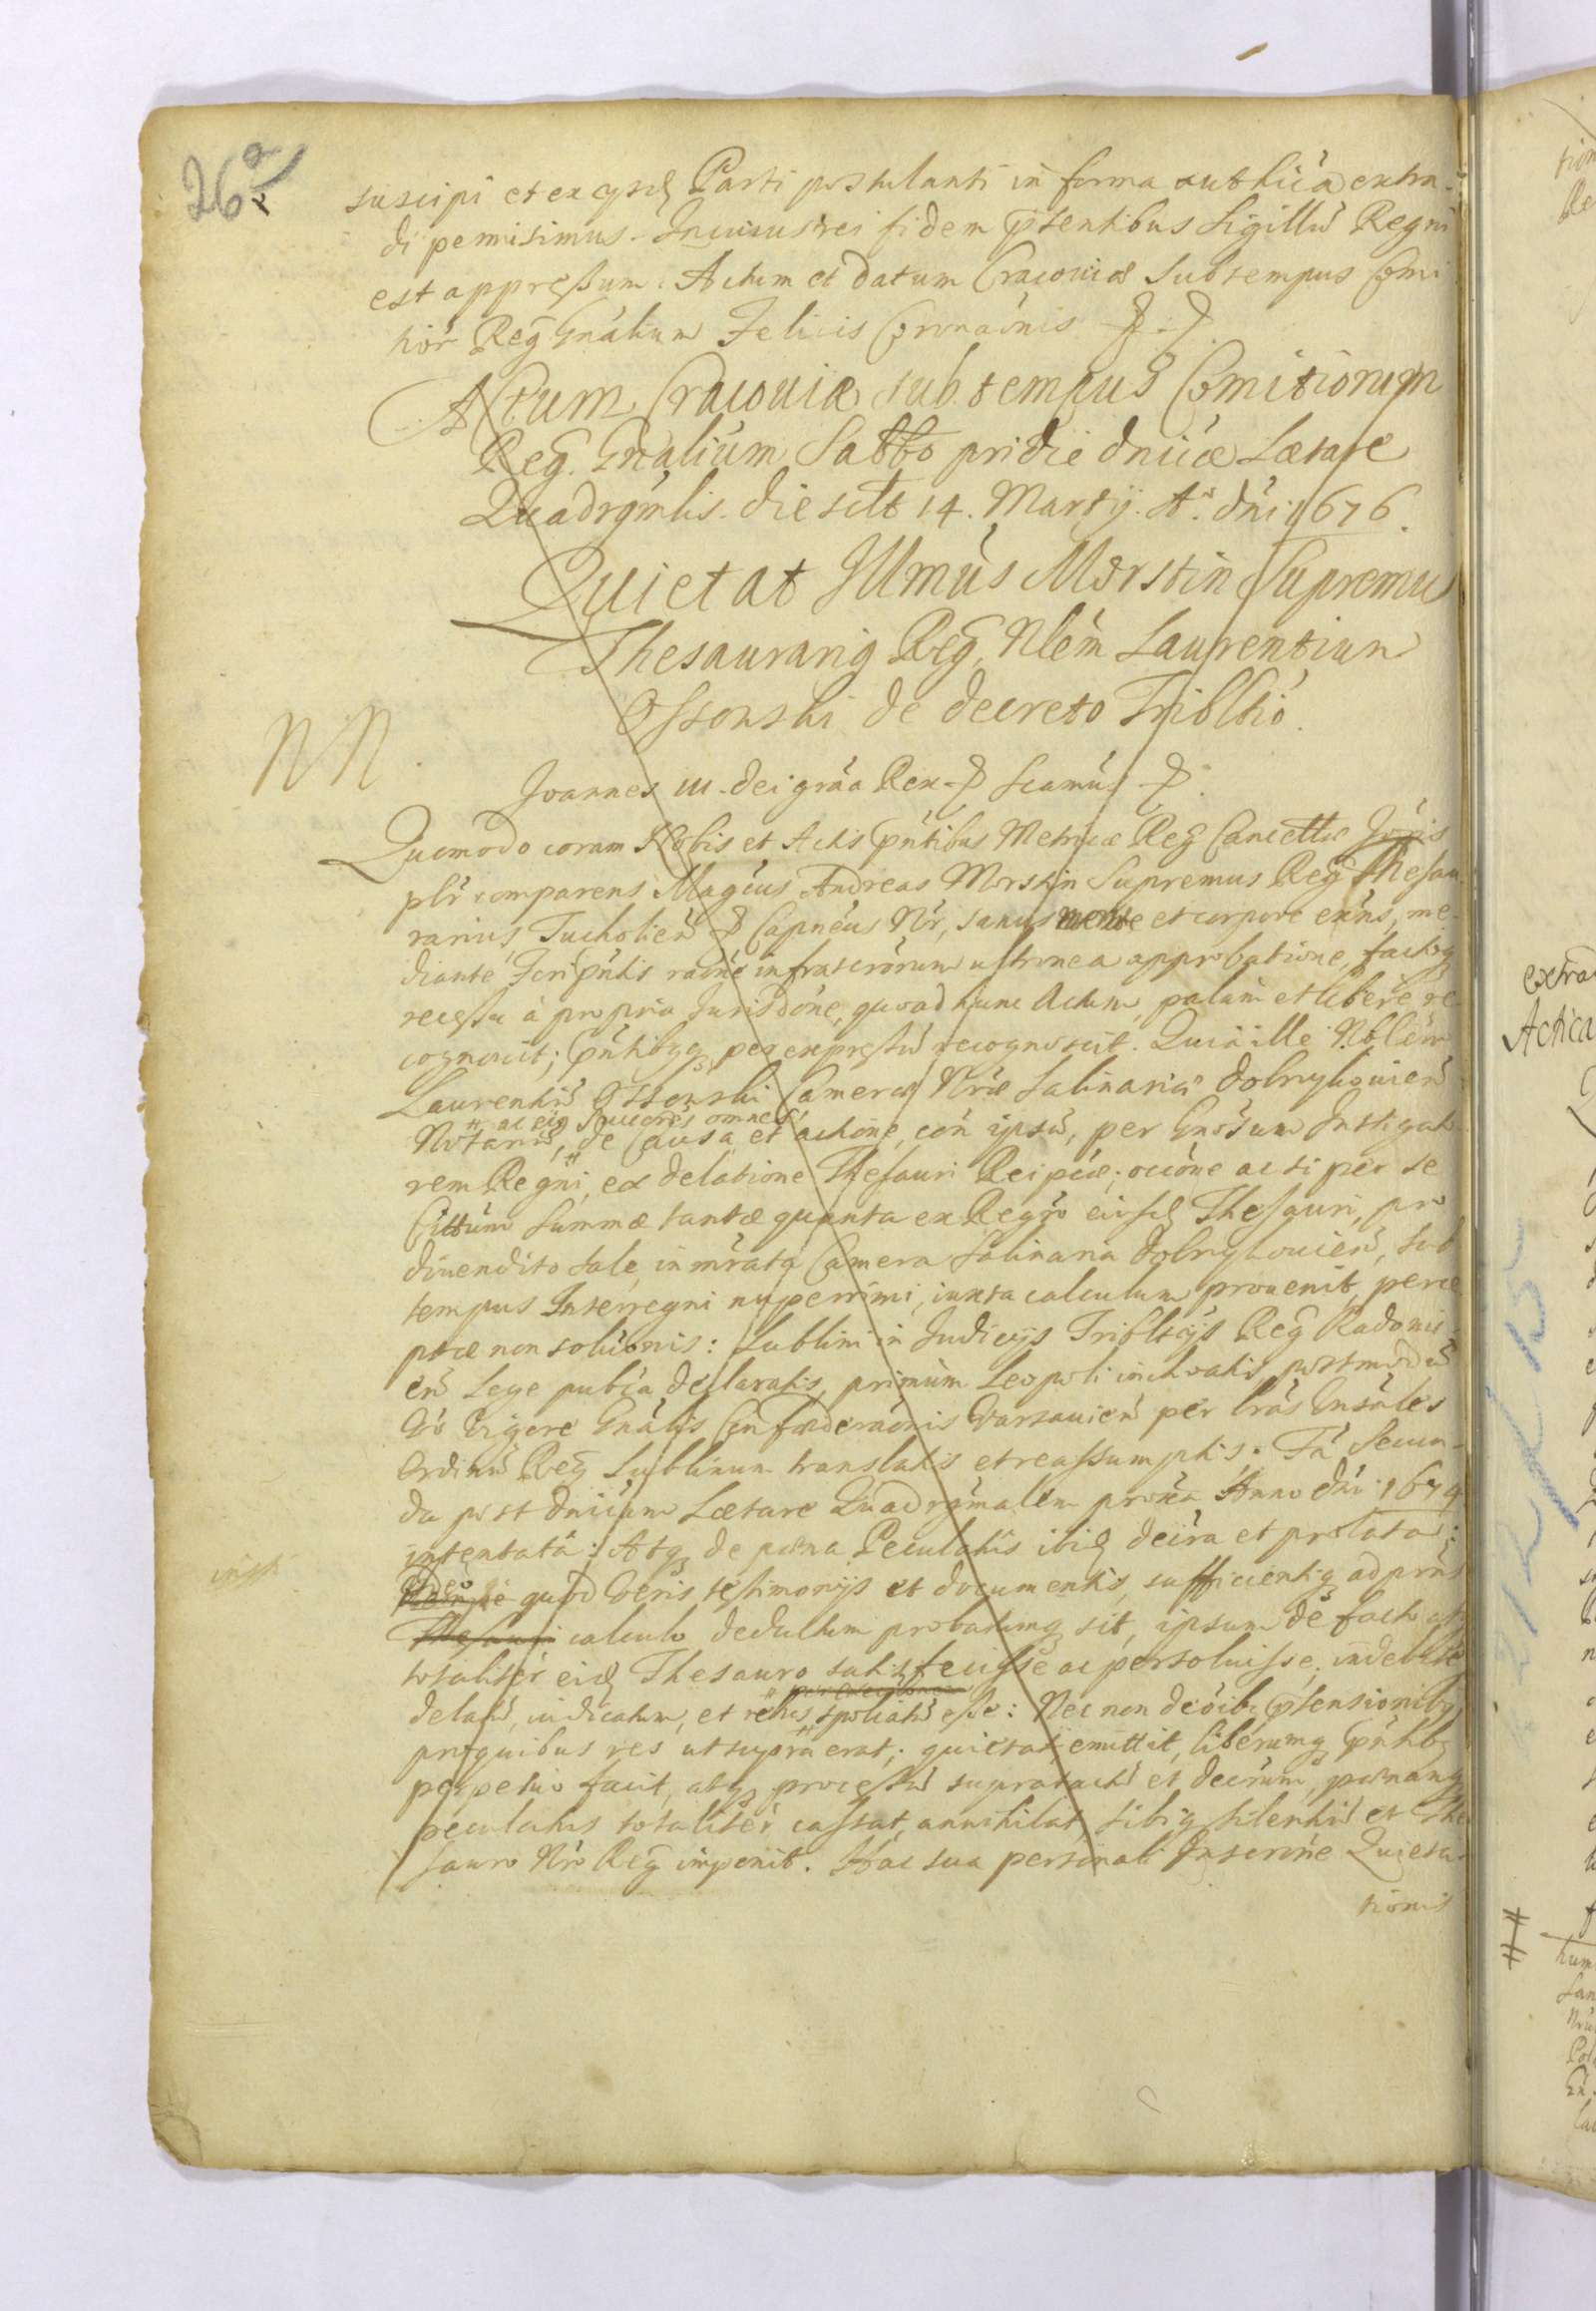 26
suscipi et ex eysd Parti postulanti in forma authica extra-
di permisimus. In cuius rei fidem pntentibus Sigillu Regni
est appressum. Actum et datum Cracoviae Sub tempus Comi
tior Reg Gnalium Felicis Coronaonis
Actum Cracoviæ sub tempus Comitiorum
Reg. Gnalium Sabbo pridie dnicæ Lætare
Quadrgmlis. die sclt 14. Martij. Ao. dni 1676.
Quietat Illmus Morstin Supremus
Thesaurarig Reg. Nlem Laurentium
Ossonski de decreto Tribltio.
NN.
Joannes III. dei gra Rex Seamus
Quomodo coram Nobis et Actis pntibus Metricæ Reg Cancellæ
plr comparens Magcus Andreas Morstin Supremus Reg Thesau
rarius Tucholien Capneus Nr, sanus mente et corpore exns, me-
diante Scripntis raone infrascrorum ultronea approbatione, factoq
recessu à propria Jurisdone, quoad hunc Actum, palam et libere re
cognovit; pntibqq per expressu recognoscit. Quia ille Nblem
Laurentiu Ossonski Cameræ Nræ Salinariæ dobrylovien
ac eig Succores omnes
Notariu, de Causa et actione, con ipsu, per Gnosum Instigato
rem Regni, ex delatione Thesauri Reipcæ, occone ac si per se
Cittum Summæ tantæ quanta ex Regro eiusd Thesauri, pro
divendito sale, in mrata Camera Salinaria dobrylovien, sub
tempus Interregni nuperrimi, iuxta calculum provenit, perce
ptæ non soluonis: Lublini in Judicijs Tribltijs Reg Radomi
en Lege publca declaratis, primum Leopoli inchoatis postmodu
Vigore Gnalis Confæderaonis Varsavien per lras Gnsales
Ordinu Reg Lublinum translatis et reassumptis. Fa Secun-
da post dnicam Lætare Quadrgmalem proxa Anno dni 1674
intentata: Atqz de poena Peculatus ibid decra et prolata:
inpti
eo quod veris testimonijs et documentis, sufficientiq ad prns
Thesauri calculo deductum probatumq sit, ipsum de facto ac
totaliter eid Thesauro satisfecisse ac persoluisse, indebite
delatu, iudicatum, et rebus spoliatu esse: Nec non de oibs ptensionibq
pro quibus res ut supra erat, quietat, emittit, liberumq pntibq
perpetuo facit, atqz processu supratactu et decrum, poenamq
peculatus totaliter cassat, annihilat, sibiq silentiu et The
sauro Nro Reg imponit. Hac sua personali Inscrone Quieta
tionis
extra
Actica